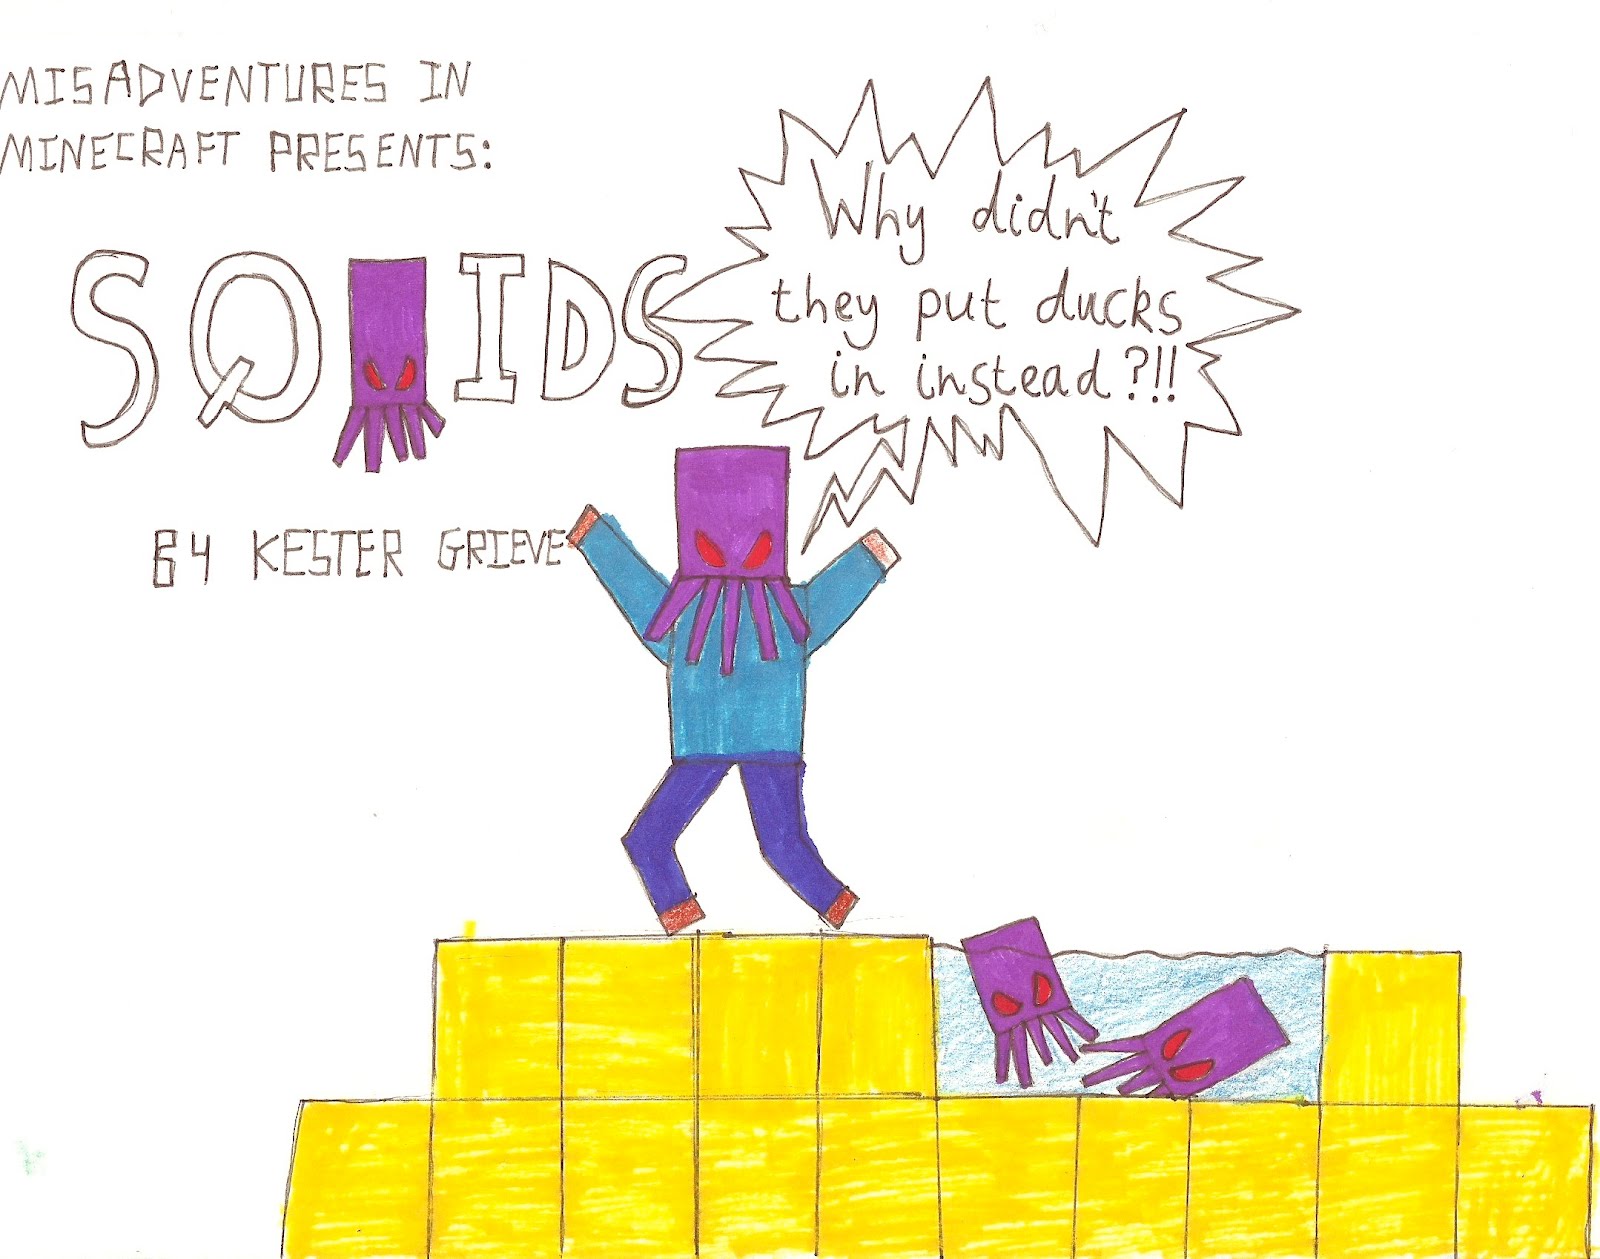 MISADVENTURES IN
MINECRAFT PRESENTS:
SQUIDS
BY KESTER GRIEVE
Why didn't
they put ducks
in instead?!!